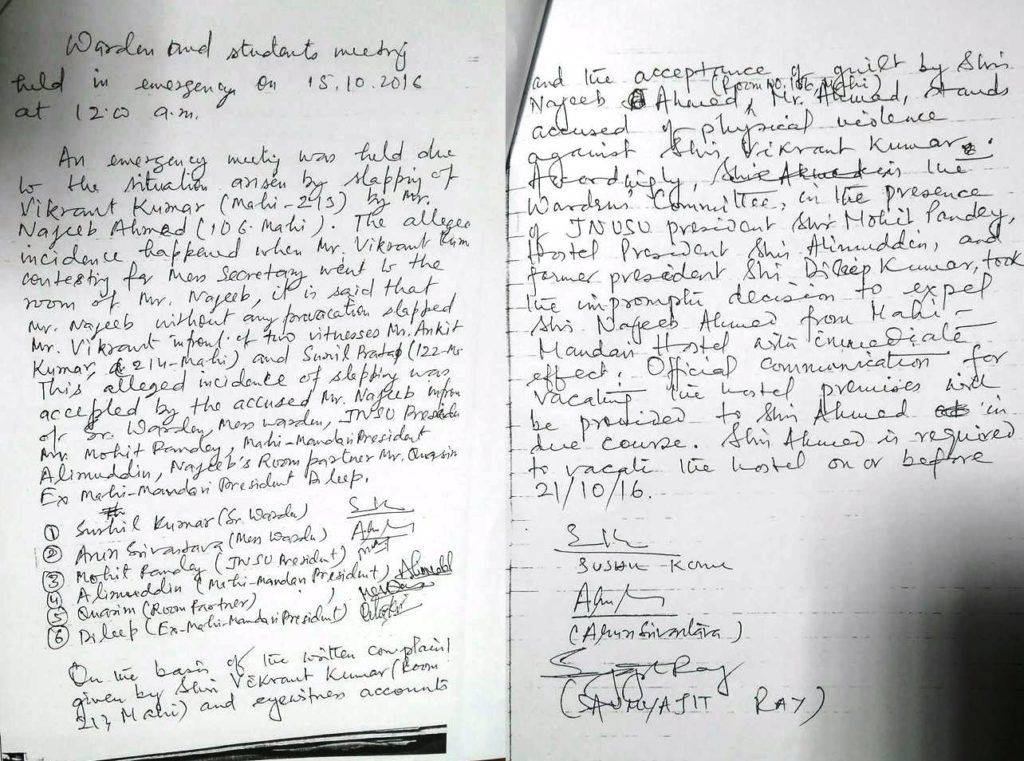 Warden and students meeting
held in emergency on 15.10.2016
at 12:00 a.m.
An emergency meeting was held due
to the situation arisen by slapping of
Vikrant Kumar (Mahi-213) by Mr.
Najeeb Ahmed (106-Mahi). The allege
incidence happened when Mr. Vikrant Kum
contesting for Mess Secretary went to the
room of Mr. Najeeb, it is said that
Mr. Najeeb without any provocation slapped
Mr. Vikrant infront of two witnesses Mr. Ankit
Kumar, 214-Mahi) and Sunil Pratap (122-M
This alleged incidence of slapping was
accepted by the accused Mr. Najeeb infron
of Sr. Warden, Mess warden, JNSU President
Mr. Mohit Pandey, Mahi-Mandavi President
Alimuddin, Najeeb's Room partner Mr. Quasim
Ex Mahi-Mandavi President Dileep.
① Sushil Kumar (Sr. Warden) SK
② Arun Srivastava (Mess Warden)
③ Mohit Pandey (JNSU President)
④ Alimuddin (Mahi-Mandavi President)
⑤ Quasim (Room Partner)
⑥ Dileep (Ex-Mahi-Mandavi President)
On the basis of the written complaint
given by Shri Vikrant Kumar (Room
213, Mahi) and eyewitness accounts
and the acceptance of guilt by Shri
Najeeb Ahmed (Room No. 106, Mahi), Mr. Ahmed, stands
accused of physical violence
against Shri Vikrant Kumar.
Accordingly, the
Wardens' Committee, in the presence
of JNUSU president Shri Mohit Pandey,
Hostel President Shri Alimuddin, and
former president Shri Dileep Kumar, took
the impromptu decision to expel
Shri Najeeb Ahmed from Mahi-
Mandavi Hostel with immediate
effect. Official communication for
vacating the hostel premises will
be provided to Shri Ahmed in
due course. Shri Ahmed is required
to vacate the hostel on or before
21/10/16.
SK
Sushil Kumar
(Arun Srivastava)
(SAUMYAJIT RAY)